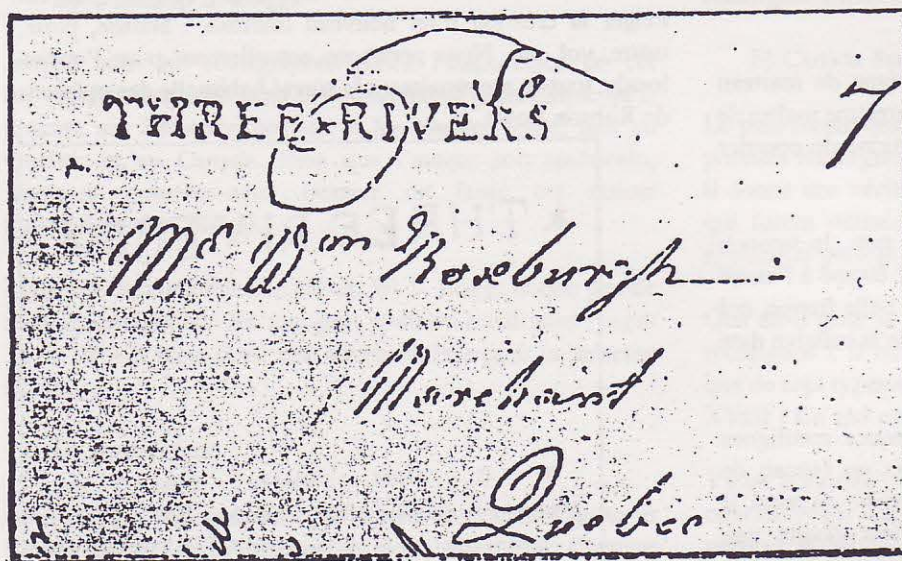 To
THREE★RIVERS
7
Mr Wm Roxburgh
Merchant
Quebec